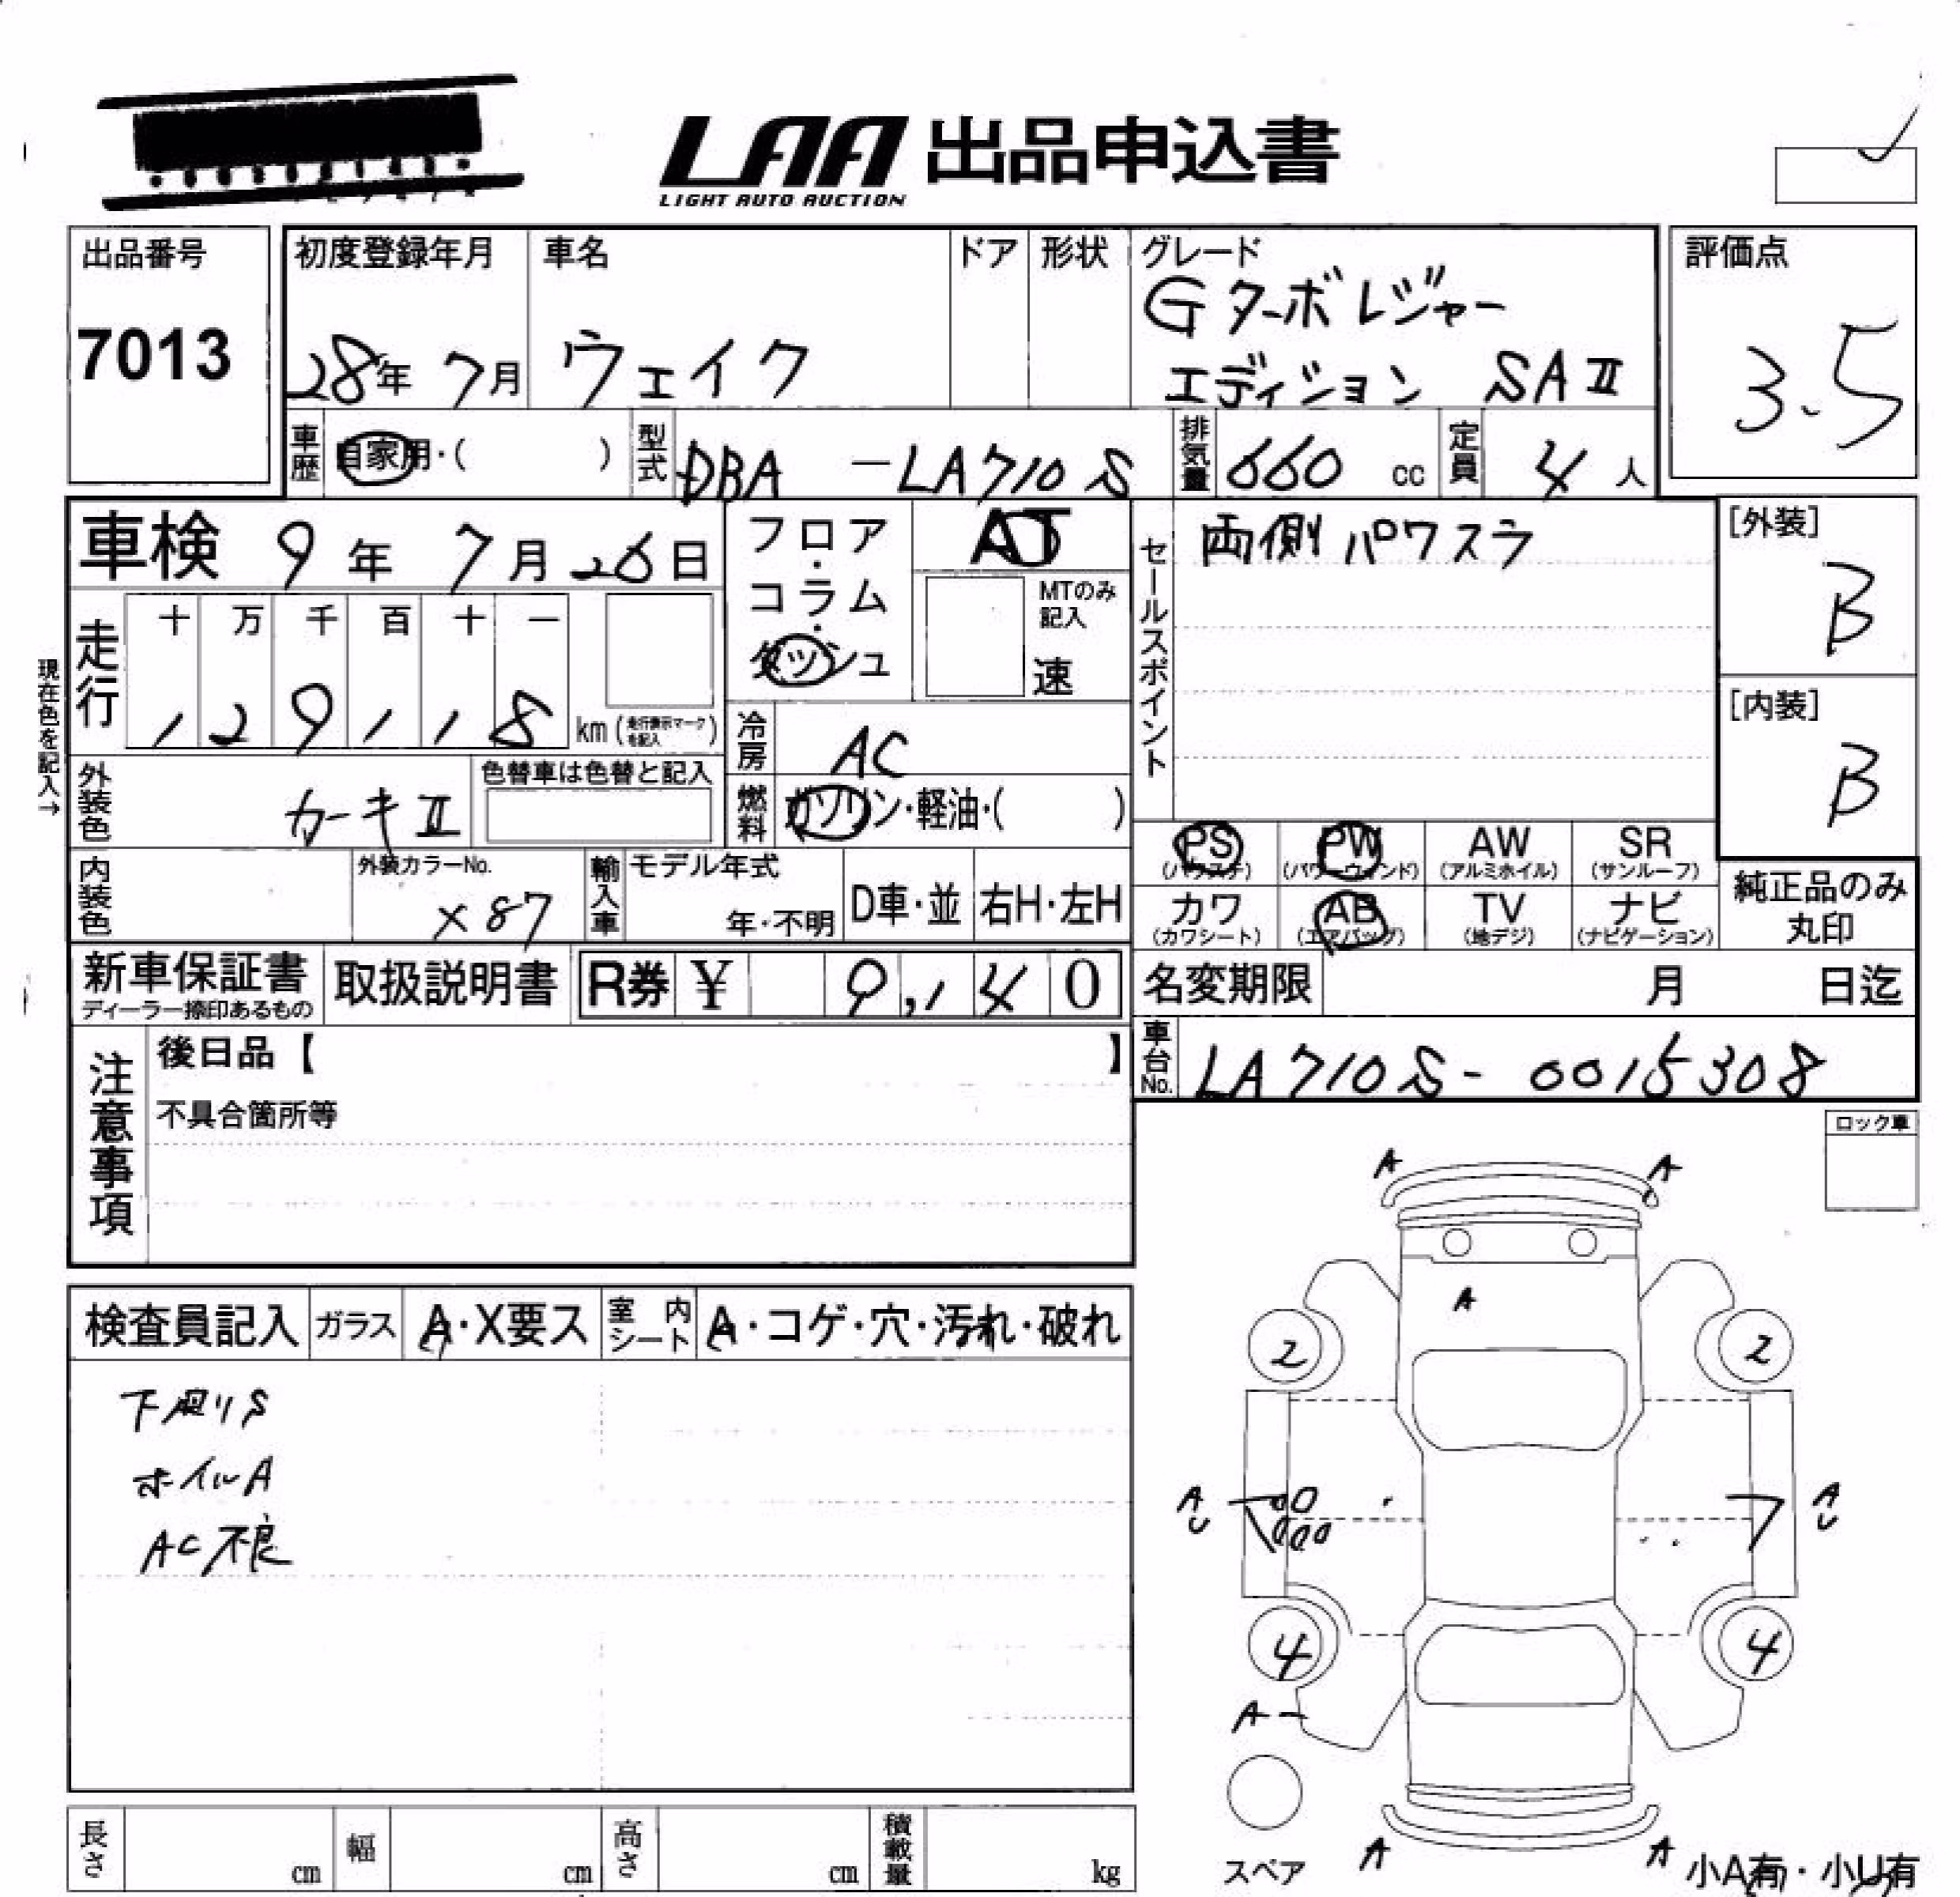 LAA 出品申込書
LIGHT AUTO AUCTION
出品番号
7013
初度登録年月
28年 7月
車名
ウェイク
ドア
形状
グレード
Gターボ レジャー
エディション SAⅡ
評価点
3.5
車歴
自家用・( )
型式
DBA - LA710S
排気量
660 cc
定員
4 人
車検 9年 7月 26日
フロア・コラム・ダッシュ
AT
MTのみ記入
速
セールスポイント
両側パワスラ
[外装]
B
[内装]
B
現在色を記入→
走行
十 万 千 百 十 一
1 2 9 1 1 8 km (走行表示マークを記入)
冷房
AC
外装色
カーキⅡ
色替車は色替と記入
燃料
ガソリン・軽油・( )
内装色
外装カラーNo.
X87
輸入車
モデル年式
年・不明
D車・並
右H・左H
PS (パワステ)
PW (パワーウィンド)
AW (アルミホイル)
SR (サンルーフ)
カワ (カワシート)
AB (エアバッグ)
TV (地デジ)
ナビ (ナビゲーション)
純正品のみ丸印
新車保証書
ディーラー捺印あるもの
取扱説明書
R券 ¥ 9,140
名変期限 月 日迄
車台No.
LA710S-0015308
注意事項
後日品【 】
不具合箇所等
ロック車
検査員記入
ガラス
A・X要ス
室内シート
A・コゲ・穴・汚れ・破れ
下廻りS
ホイルA
AC不良
A A
A
2 2
A U
A U
4 4
A
スペア
A A
小A有・小U有
長さ cm
幅 cm
高さ cm
積載量 kg